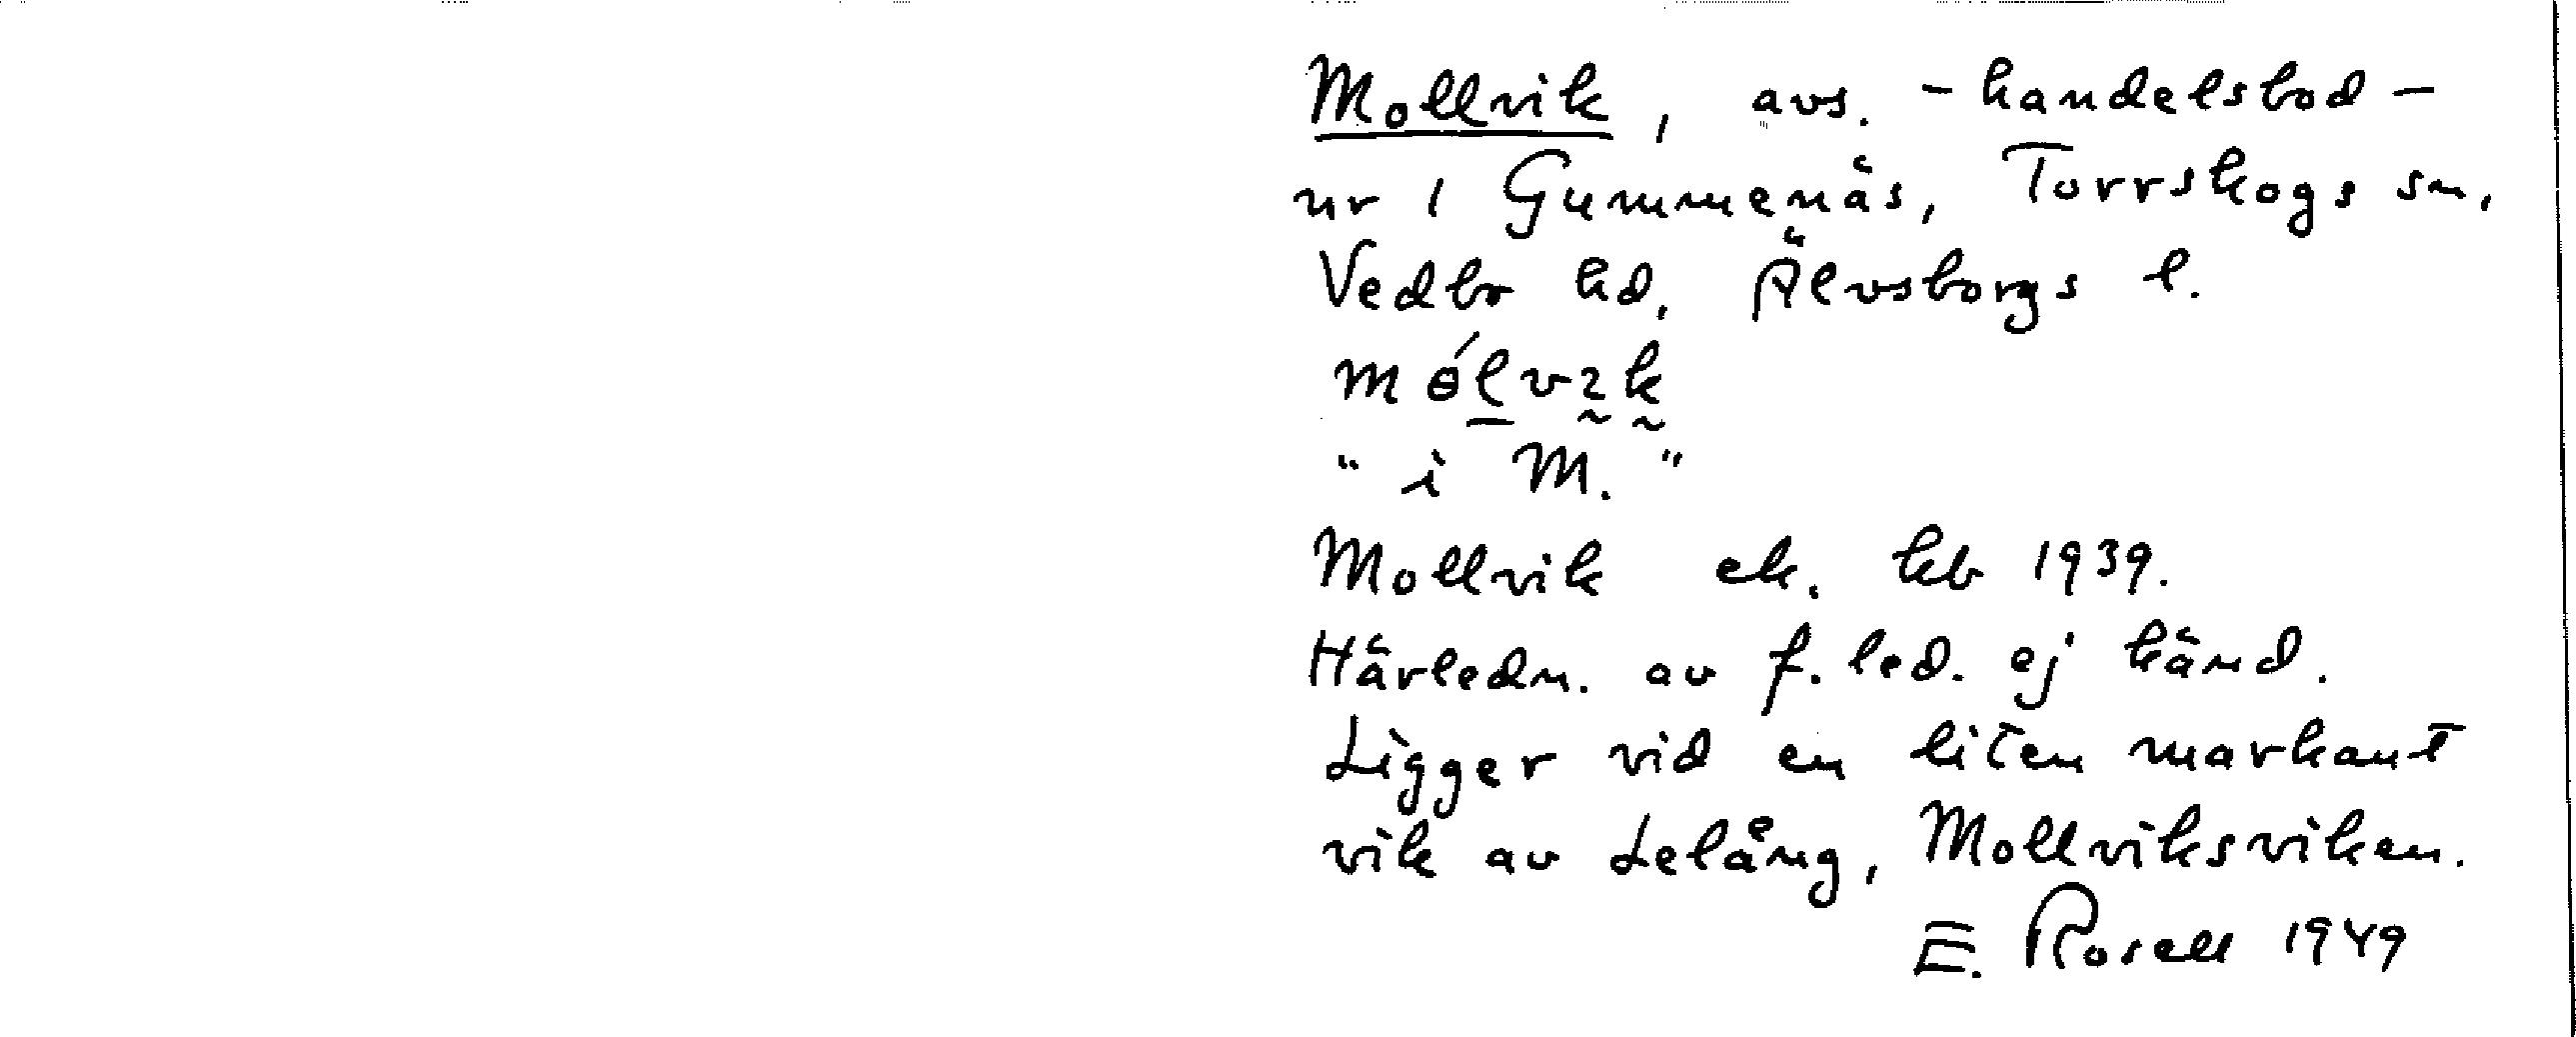 Mollvik, avs. - handelsbod -
nr 1 Gummenäs, Torrskogs sn,
Vedbo hd, Älvsborgs l.
"i M."
Mollvik ek. kb 1939.
Härledn. av f. led. ej känd.
Ligger vid en liten markant
vik av Lelång, Mollviksviken.
E. Rosell 1949